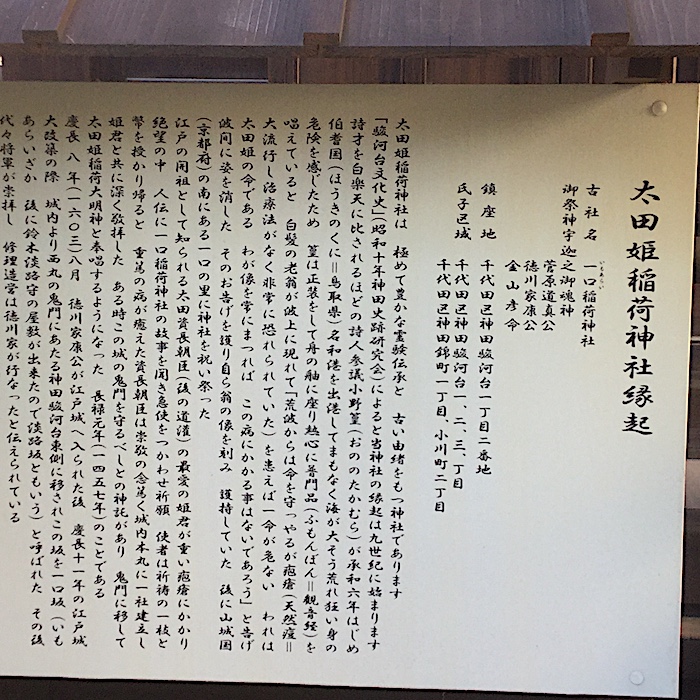 太田姫稲荷神社縁起
古社名 一口稲荷神社
いもあらい
御祭神宇迦之御魂神
菅原道真公
徳川家康公
金山彦命
鎮座地 千代田区神田駿河台一丁目二番地
氏子区域 千代田区神田駿河台一、二、三、丁目
千代田区神田錦町一丁目、小川町二丁目
太田姫稲荷神社は 極めて豊かな霊験伝承と 古い由緒をもつ神社であります
「駿河台文化史」(昭和十年神田史跡研究会)によると当神社の縁起は九世紀に始まります
詩才を白楽天に比されるほどの詩人参議小野篁(おののたかむら)が承和六年はじめ
伯耆国(ほうきのくに=鳥取県)名和港を出港してまもなく海が大そう荒れ狂い身の
危険を感じたため 篁は正装をして舟の舳に座り熱心に普門品(ふもんぼん=観音経)を
唱えていると 白髪の老翁が波上に現れて「荒波からは命を守ってやるが疱瘡(天然痘=
大流行し治療法がなく非常に恐れられていた)を患えば一命が危ない われは
太田姫の命である わが像を常にまつれば この病にかかる事はないであろう」と告げ
波間に姿を消した そのお告げを護り自ら翁の像を刻み 護持していた 後に山城国
(京都府)の南にある一口の里に神社を祝い祭った
江戸の開祖として知られる太田資長朝臣(後の道灌)の最愛の姫君が重い疱瘡にかかり
絶望の中 人伝に一口稲荷神社の故事を聞き急使をつかわせ祈願 使者は祈祷の一枝と
幣を授かり帰ると 重篤の病が癒えた資長朝臣は崇敬の念篤く城内本丸に一社建立し
姫君と共に深く敬拝した ある時この城の鬼門を守るべしとの神託があり 鬼門に移して
太田姫稲荷大明神と奉唱するようになった 長禄元年(一四五七年)のことである
慶長 八 年(一六〇三)八月 徳川家康公が江戸城へ入られた後 慶長十一年の江戸城
大改築の際 城内より西丸の鬼門にあたる神田駿河台東側に移されこの坂を一口坂(いも
あらいざか 後に鈴木淡路守の屋敷が出来たので淡路坂ともいう)と呼ばれた その後
代々将軍が崇拝し 修理造営は徳川家が行なったと伝えられている